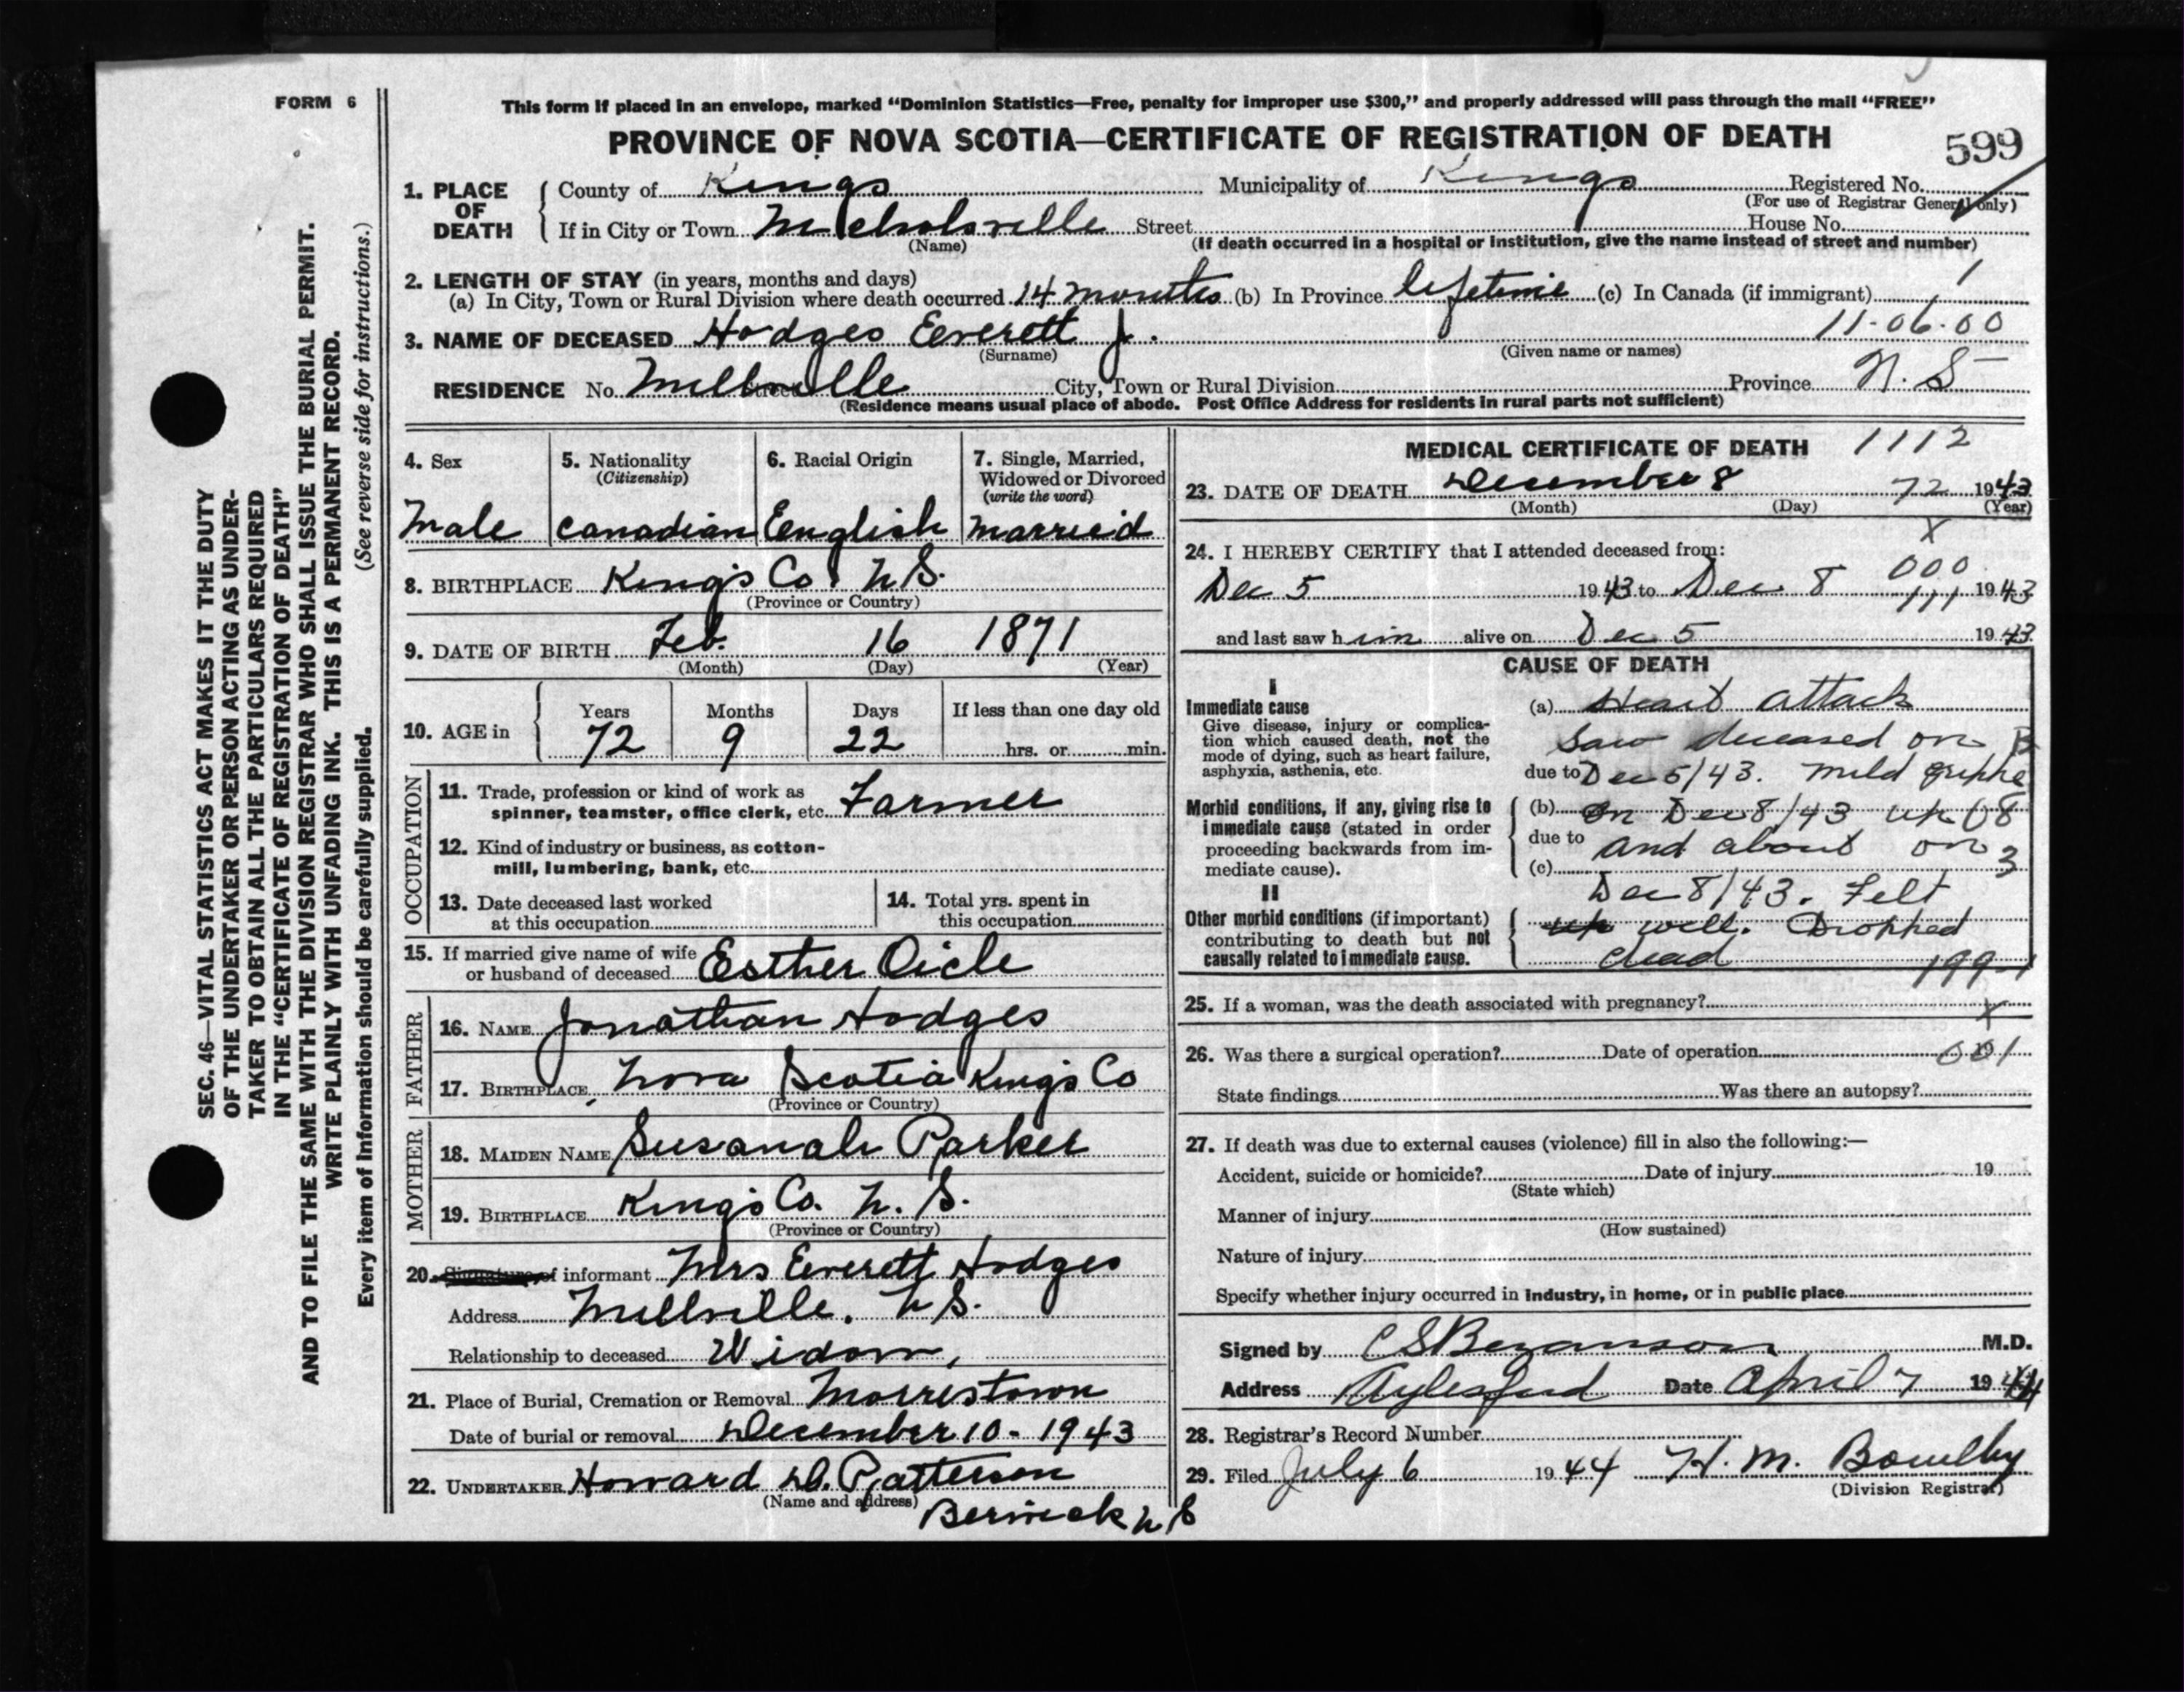 FORM 6
This form if placed in an envelope, marked "Dominion Statistics—Free, penalty for improper use $300," and properly addressed will pass through the mail "FREE"
PROVINCE OF NOVA SCOTIA—CERTIFICATE OF REGISTRATION OF DEATH
599
1. PLACE OF DEATH
County of Kings Municipality of Kings Registered No.
(For use of Registrar General only)
If in City or Town Nicholsville Street House No.
(Name) (If death occurred in a hospital or institution, give the name instead of street and number)
2. LENGTH OF STAY (in years, months and days)
(a) In City, Town or Rural Division where death occurred 14 months (b) In Province lifetime (c) In Canada (if immigrant) 1
3. NAME OF DECEASED Hodges Everett J. 11-06-00
(Surname) (Given name or names)
RESIDENCE No. Millville Street City, Town or Rural Division Province N. S
(Residence means usual place of abode. Post Office Address for residents in rural parts not sufficient)
SEC. 46—VITAL STATISTICS ACT MAKES IT THE DUTY
OF THE UNDERTAKER OR PERSON ACTING AS UNDER-
TAKER TO OBTAIN ALL THE PARTICULARS REQUIRED
IN THE "CERTIFICATE OF REGISTRATION OF DEATH"
AND TO FILE THE SAME WITH THE DIVISION REGISTRAR WHO SHALL ISSUE THE BURIAL PERMIT.
WRITE PLAINLY WITH UNFADING INK. THIS IS A PERMANENT RECORD.
Every item of information should be carefully supplied. (See reverse side for instructions.)
4. Sex
Male
5. Nationality
(Citizenship)
Canadian
6. Racial Origin
English
7. Single, Married,
Widowed or Divorced
(write the word)
Married
8. BIRTHPLACE King's Co. N.S.
(Province or Country)
9. DATE OF BIRTH Feb. 16 1871
(Month) (Day) (Year)
10. AGE in Years Months Days If less than one day old
72 9 22 hrs. or min.
OCCUPATION
11. Trade, profession or kind of work as
spinner, teamster, office clerk, etc. Farmer
12. Kind of industry or business, as cotton-
mill, lumbering, bank, etc.
13. Date deceased last worked
at this occupation
14. Total yrs. spent in
this occupation
15. If married give name of wife
or husband of deceased Esther Oicle
FATHER
16. NAME Jonathan Hodges
17. BIRTHPLACE Nova Scotia King's Co
(Province or Country)
MOTHER
18. MAIDEN NAME Susanah Parker
19. BIRTHPLACE King's Co. N. S.
(Province or Country)
20. Signature of informant Mrs Everett Hodges
Address Millville. N S.
Relationship to deceased Widow,
21. Place of Burial, Cremation or Removal Morristown
Date of burial or removal December 10 - 1943
22. UNDERTAKER Howard D. Patterson
(Name and address) Berwick N S
MEDICAL CERTIFICATE OF DEATH 1112
23. DATE OF DEATH December 8 72 1943
(Month) (Day) (Year)
X
24. I HEREBY CERTIFY that I attended deceased from:
000
Dec 5 1943 to Dec 8 111 1943
and last saw him alive on Dec 5 1943
CAUSE OF DEATH
I
Immediate cause
Give disease, injury or complica-
tion which caused death, not the
mode of dying, such as heart failure,
asphyxia, asthenia, etc.
(a) Heart attack
Saw deceased on
due to Dec 5/43. Mild grippe
Morbid conditions, if any, giving rise to
immediate cause (stated in order
proceeding backwards from im-
mediate cause).
(b) On Dec 8/43 up
due to and about on
(c)
Dec 8/43. Felt
II
Other morbid conditions (if important)
contributing to death but not
causally related to immediate cause.
up well. Dropped
dead
199-1
25. If a woman, was the death associated with pregnancy?
X
26. Was there a surgical operation? Date of operation 19
001
State findings Was there an autopsy?
27. If death was due to external causes (violence) fill in also the following:—
Accident, suicide or homicide? Date of injury 19
(State which)
Manner of injury
(How sustained)
Nature of injury
Specify whether injury occurred in industry, in home, or in public place
Signed by C S Bezanson M.D.
Address Aylesford Date April 7 1944
28. Registrar's Record Number
29. Filed July 6 1944 H. M. Bowlby
(Division Registrar)